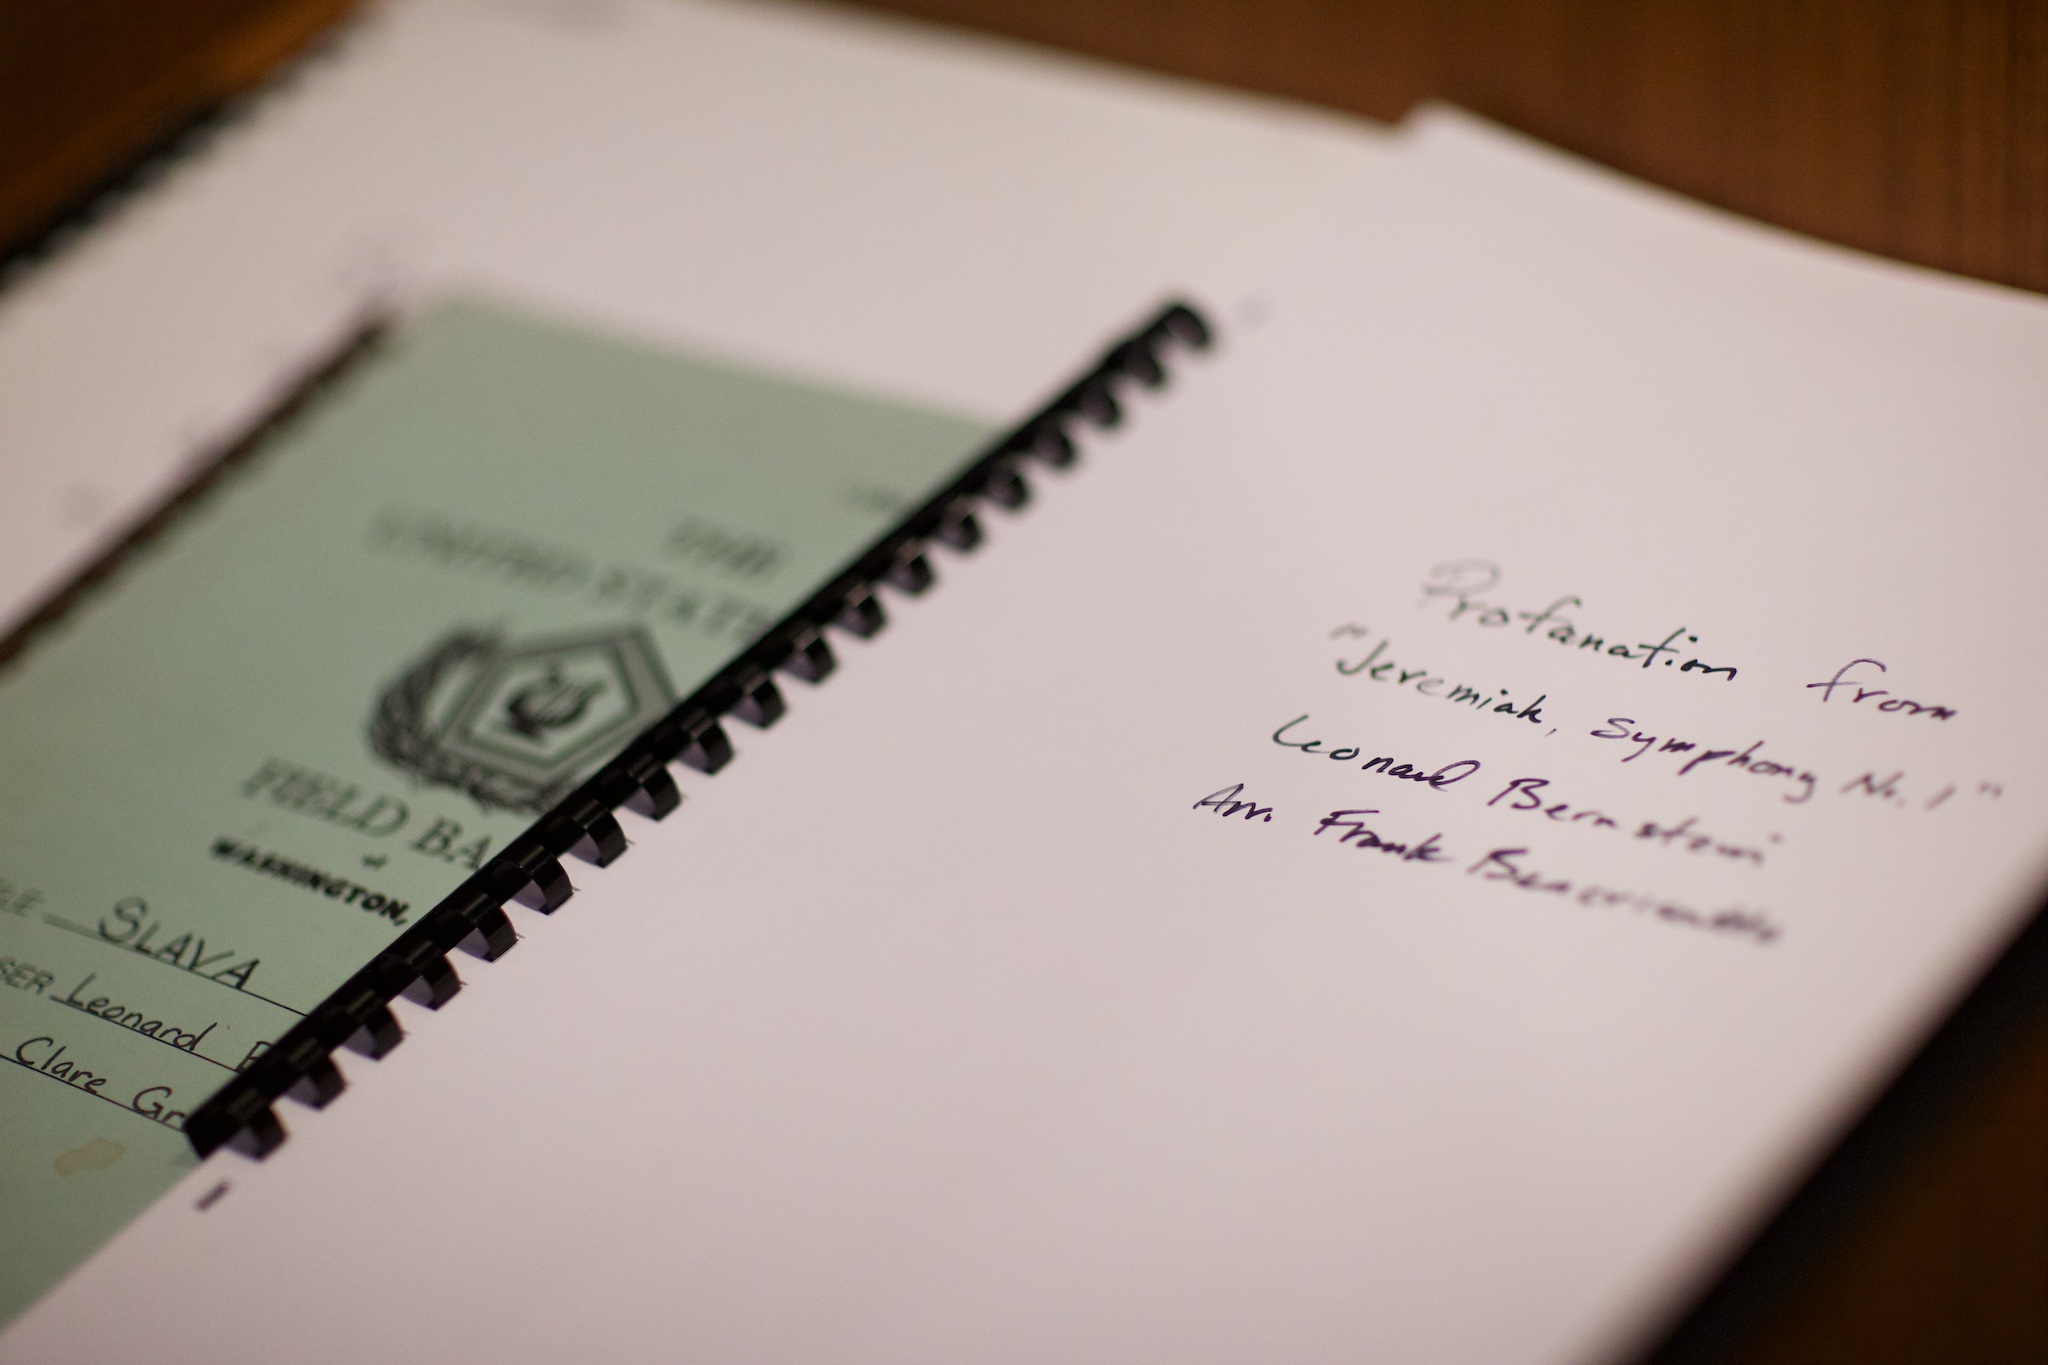 THE
UNITED STATE
FIELD BA
at
WASHINGTON,
LE SLAVA
SER Leonard B
Clare Gr
Profanation from
"Jeremiah, Symphony No. 1"
Leonard Bernstein
Arr. Frank